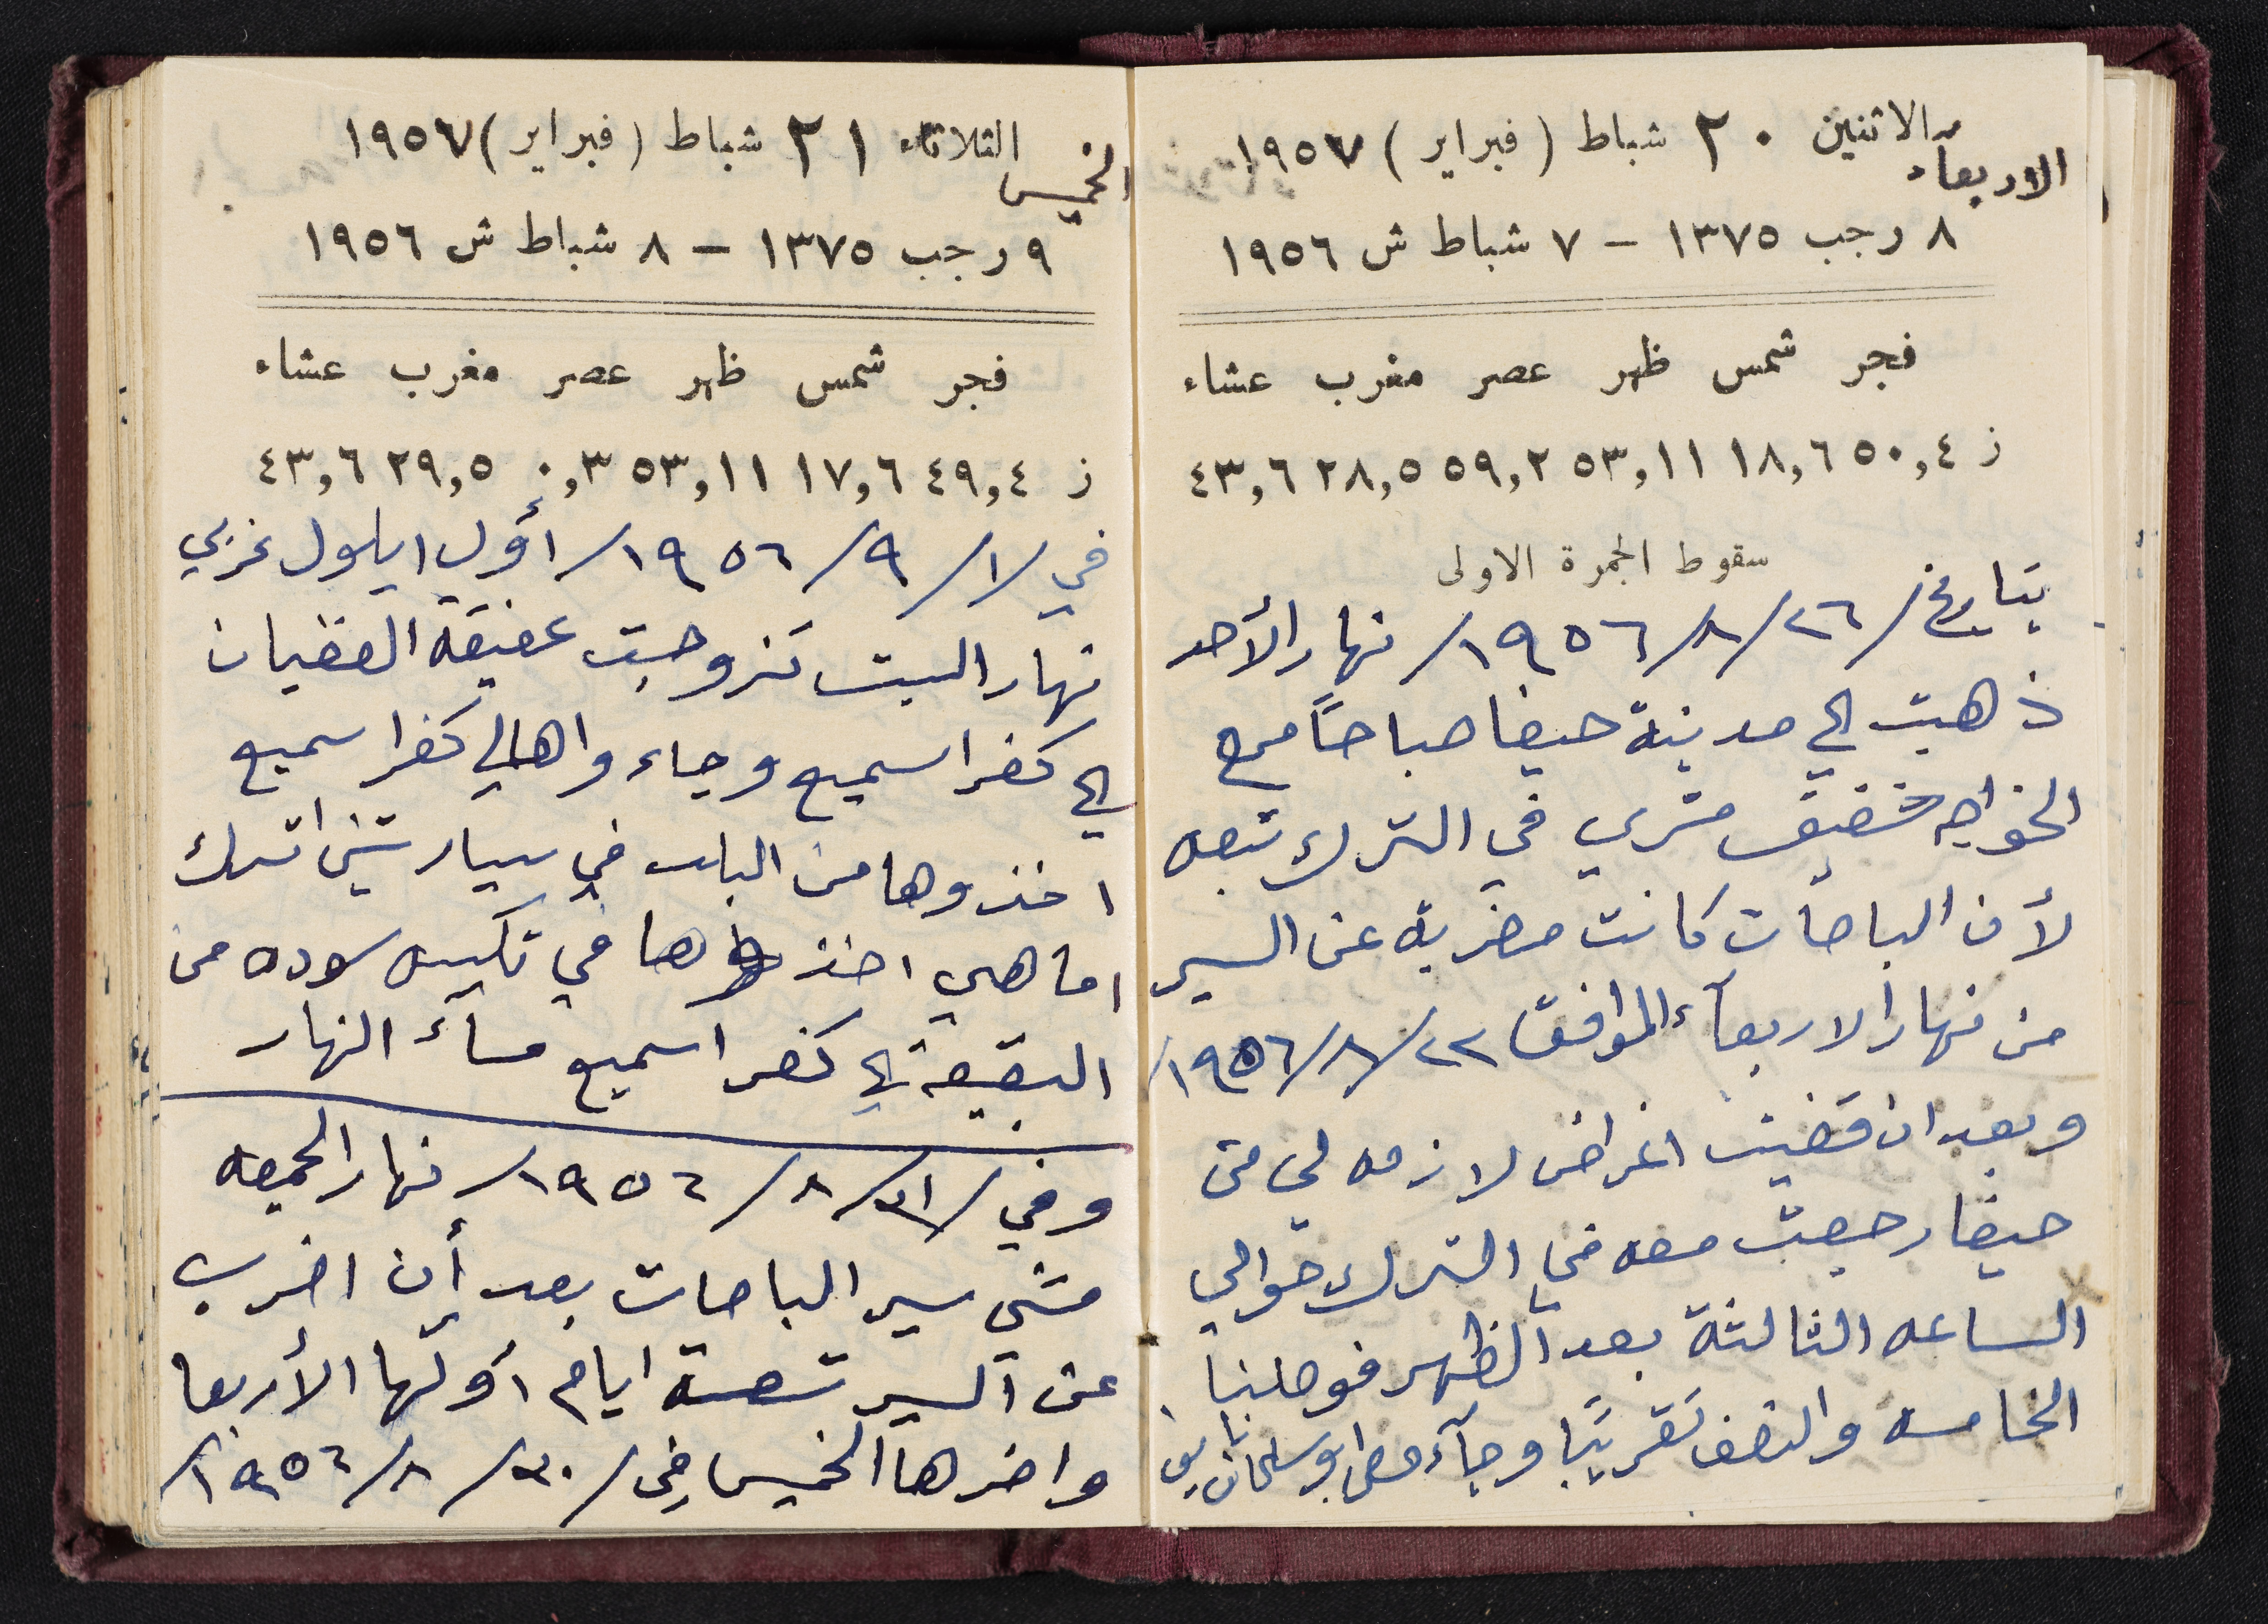 الاثنين ٢٠ شباط (فبراير) ١٩٥٧
الاربعاء
٨ رجب ١٣٧٥ – ٧ شباط ش ١٩٥٦
فجر شمس ظهر عصر مغرب عشاء
ز ٥٠,٤ ١٨,٦ ٥٣,١١ ٥٩,٢ ٢٨,٥ ٤٣,٦
سقوط الجمرة الاولى
بتاريخ /٢٦/٨/١٩٥٦/ نهار الأحد
ذهبت الي مدينة حيفا صباحاً مع
الخواجه شفيق متري في الترك تبعه
لأن الباصات كانت مضربه عن السير
من نهار الاربعآء الموافق ٢٢/٨/١٩٥٦/
وبعد ان قضيت اغراض لازمه لي من
حيفا رجعت معه في الترك حوالي
الساعه الثالثة بعد الظهر فوصلنا
الخامسه والنصف تقريبًا وجآء معنا ابو سلمان
الثلاثاء ٢١ شباط (فبراير) ١٩٥٧
الخميس
٩ رجب ١٣٧٥ – ٨ شباط ش ١٩٥٦
فجر شمس ظهر عصر مغرب عشاء
ز ٤٩,٤ ١٧,٦ ٥٣,١١ ٠,٣ ٢٩,٥ ٤٣,٦
في /١/٩/١٩٥٦/ أول ايلول غربي
نهار السبت تزوجت عفيفة الغضبان
الي كفر اسميع وجاءوا اهالي كفر اسميع
اخذوها من البلد في سيارتين اترك
اما هي اخذوها في تكسي سوده من
البقيعة الي كفر اسميع مسآء النهار
وفي /٣١/٨/١٩٥٦/ نهار الجمعه
مشي سير الباصات بعد أن اضرب
عن السير تسعة ايام أولها الأربعا
واخرها الخميس في /٣٠/٨/١٩٥٦/